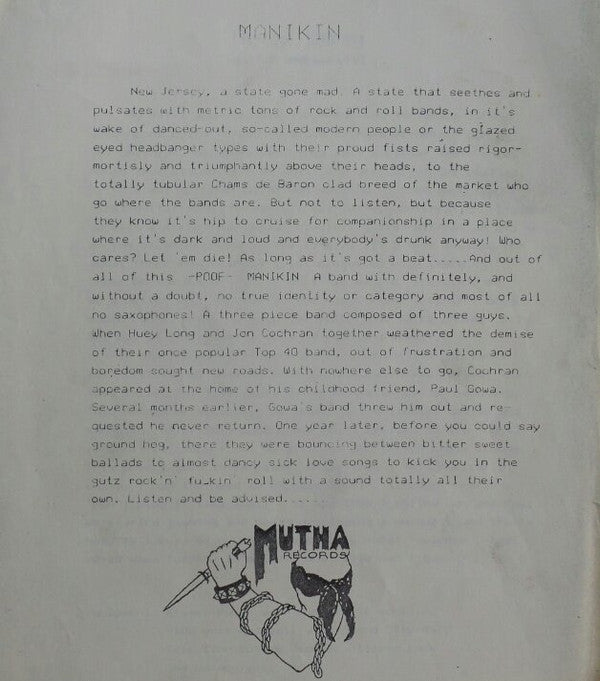 MANIKIN
New Jersey, a state gone mad. A state that seethes and
pulsates with metric tons of rock and roll bands, in it's
wake of danced-out, so-called modern people or the glazed
eyed headbanger types with their proud fists raised rigor-
mortisly and triumphantly above their heads, to the
totally tubular Chams de Baron clad breed of the market who
go where the bands are. But not to listen, but because
they know it's hip to cruise for companionship in a place
where it's dark and loud and everybody's drunk anyway! Who
cares? Let 'em die! As long as it's got a beat.....And out of
all of this -POOF- MANIKIN A band with definitely, and
without a doubt, no true identity or category and most of all
no saxophones! A three piece band composed of three guys.
When Huey Long and Jon Cochran together weathered the demise
of their once popular Top 40 band, out of frustration and
boredom sought new roads. With nowhere else to go, Cochran
appeared at the home of his childhood friend, Paul Gowa.
Several months earlier, Gowa's band threw him out and re-
quested he never return. One year later, before you could say
ground hog, there they were bouncing between bitter sweet
ballads to almost dancy sick love songs to kick you in the
gutz rock'n' fu_kin' roll with a sound totally all their
own. Listen and be advised......
MUTHA
RECORDS